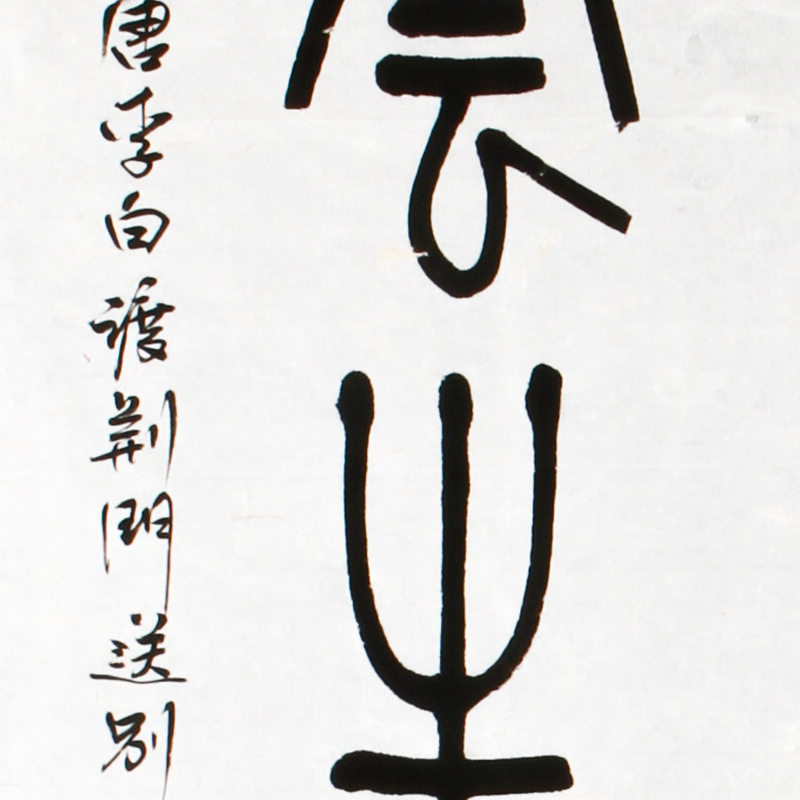 雲生
唐李白渡荆門送别